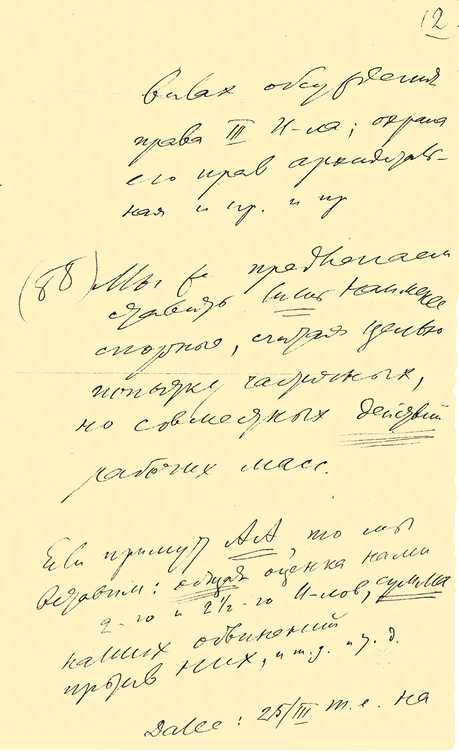 12.
вивах обсуждения
права III И-ла; охрана
его прав арендаторс-
ная и пр. и пр
(ББ) Мы же предлагаем
ставить лишь наименее
спорные, считая целью
попытку частичных,
но совместных действий
рабочих масс.
Если примут АА, то мы
вставим: общая оценка нами
2-го и 2½-го И-лов, сумма
наших обвинений
против них, и т.д. и т.д.
Далее: 25/III т.е. на